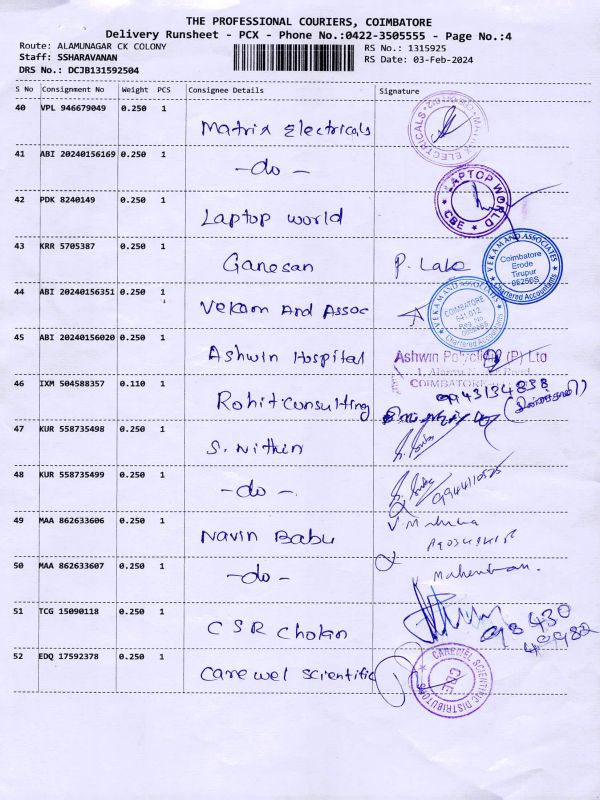 THE PROFESSIONAL COURIERS, COIMBATORE
Delivery Runsheet - PCX - Phone No.:0422-3505555 - Page No.:4
Route: ALAMUNAGAR CK COLONY
RS No.: 1315925
Staff: SSHARAVANAN
RS Date: 03-Feb-2024
DRS No.: DCJB131592504
S No Consignment No Weight PCS Consignee Details Signature
40 VPL 946679049 0.250 1 Matrix Electricals
41 ABI 20240156169 0.250 1 -do-
LAPTOP WORLD CBE
42 PDK 8240149 0.250 1 Laptop world
43 KRR 5705387 0.250 1 Ganesan P. Lake
VEKAM AND ASSOCIATES
Coimbatore
Erode
Tirupur
Chartered Accountants
44 ABI 20240156351 0.250 1 Vekam And Assoc
VEKAM AND ASSOCIATES
COIMBATORE
641 012
Chartered Accountants
45 ABI 20240156020 0.250 1 Ashwin Hospital
Ashwin (P) Ltd
COIMBATORE
46 IXM 504588357 0.110 1 Rohit Consulting
47 KUR 558735498 0.250 1 S. Nithin
48 KUR 558735499 0.250 1 -do-
49 MAA 862633606 0.250 1 Navin Babu
50 MAA 862633607 0.250 1 -do-
51 TCG 15090118 0.250 1 CSR Cholan
98 430
52 EDQ 17592378 0.250 1 Carewel Scientific
CAREWEL SCIENTIFIC DISTRIBUTORS CBE